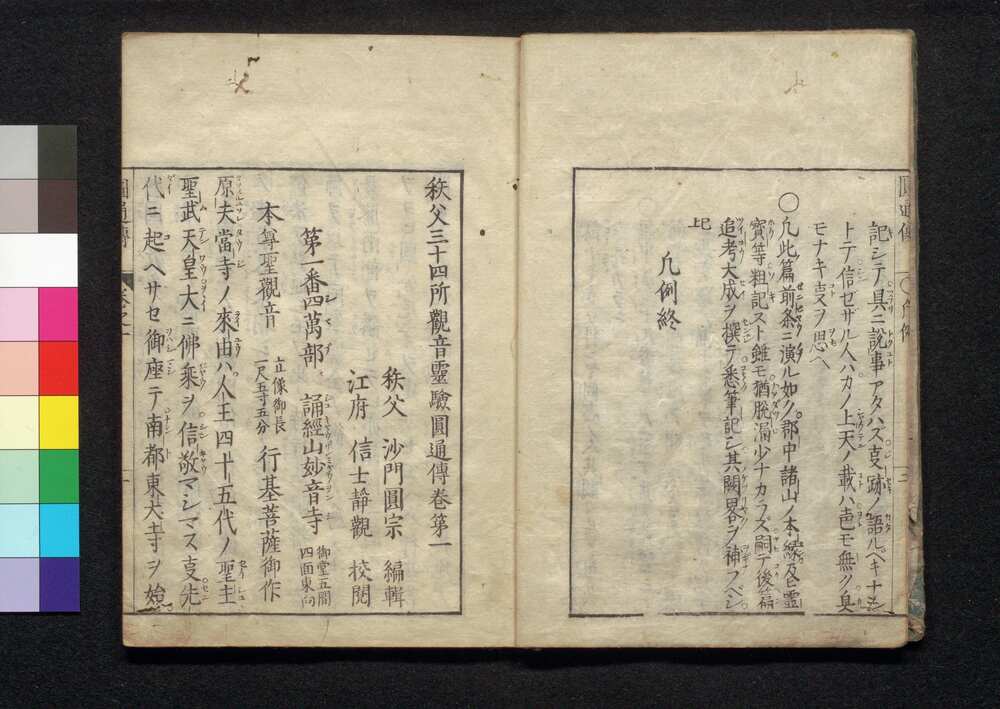 記シテ具ニ説事アタハズ支跡ノ語ルベキナシ
トテ信セザル人ハカノ上天ノ載ハ色モ無ク臭
モナキ支ヲ思ヘ
〇凡此篇前条ニ演ル如ク郡中諸山ノ本縁及ヒ霊
寳等粗記スト雖モ猶脱漏少ナカラズ嗣テ後篇
追考大成ヲ撰テ悉筆記シ其闕畧ヲ補フベシ
凡例終
秩父三十四所觀音靈驗圓通傳卷第一
秩父 沙門圓宗 編輯
江府 信士靜觀 校閲
第一番四萬部 誦經山妙音寺 御堂五間四面東向
本尊聖觀音 立像御長一尺五寸五分 行基菩薩御作
原夫當寺ノ來由ハ人王四十五代ノ聖主
聖武天皇大ニ佛乘ヲ信敬マシマス支先
代ニ起ヘサセ御座テ南都東大寺ヲ始